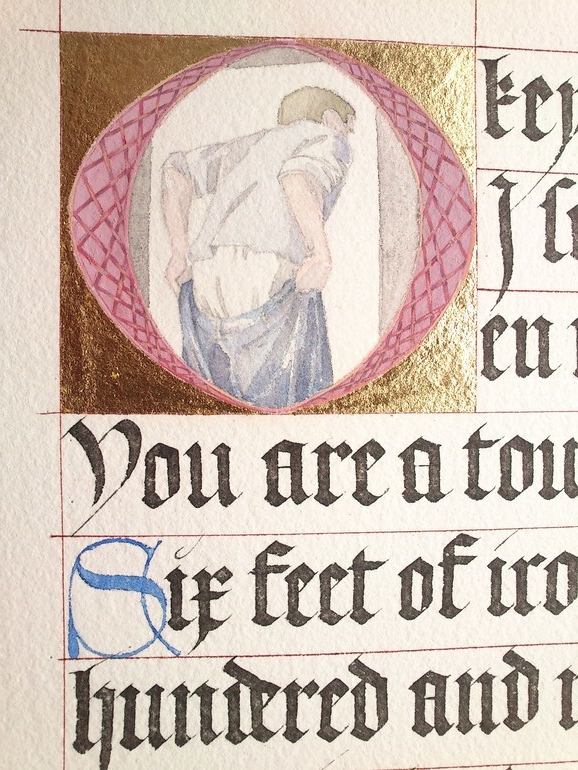 Okey
J
en
You are a tou
Six feet of iro
hundered and